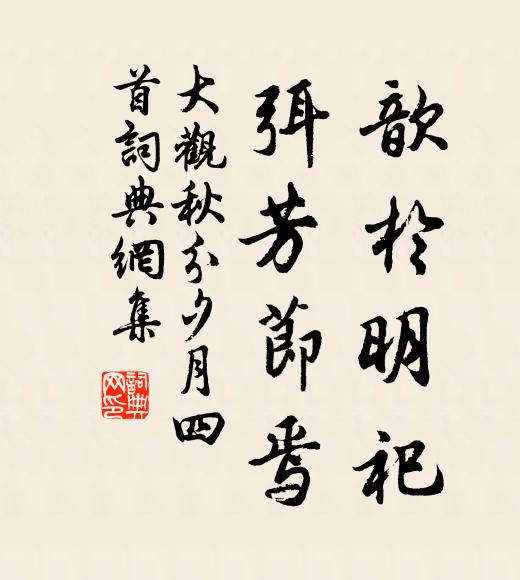 歆於明祀
弭芳節焉
大觀秋分夕月四
首詞典網集
詞典
网印